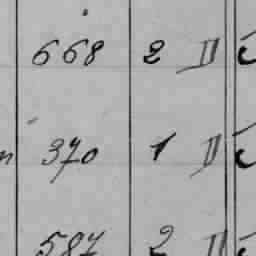 668 2 II
370 1 II
587 2 II